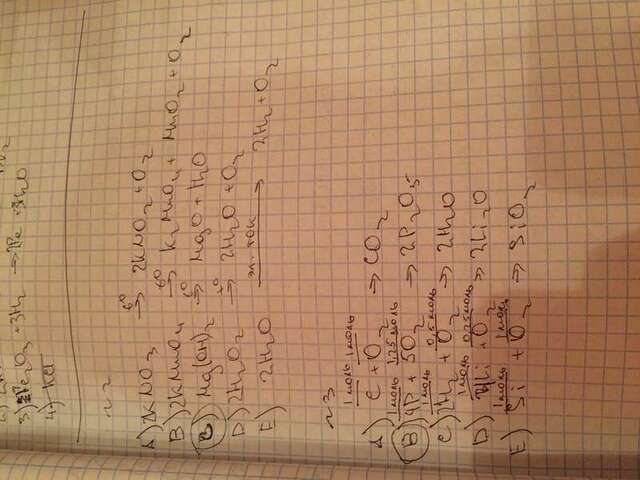 3) Fe₂O₃ + 3H₂ → 2Fe + 3H₂O
4)
№2
A) 2KNO₃ →t° 2KNO₂ + O₂
B) 2KMnO₄ →t° K₂MnO₄ + MnO₂ + O₂
C) Mg(OH)₂ →t° MgO + H₂O
D) 2H₂O₂ →t° 2H₂O + O₂
E) 2H₂O →эл. ток 2H₂ + O₂
№3
1 моль 1 моль
A) C + O₂ → CO₂
1 моль 1,25 моль
B) 4P + 5O₂ → 2P₂O₅
1 моль 0,5 моль
C) 2H₂ + O₂ → 2H₂O
1 моль 0,25 моль
D) 4Li + O₂ → 2Li₂O
1 моль 1 моль
E) Si + O₂ → SiO₂